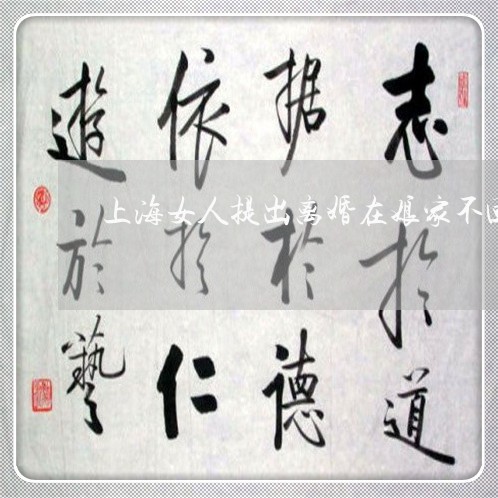 志於道
据於德
依於仁
遊於藝
上海女人提出离婚在娘家不